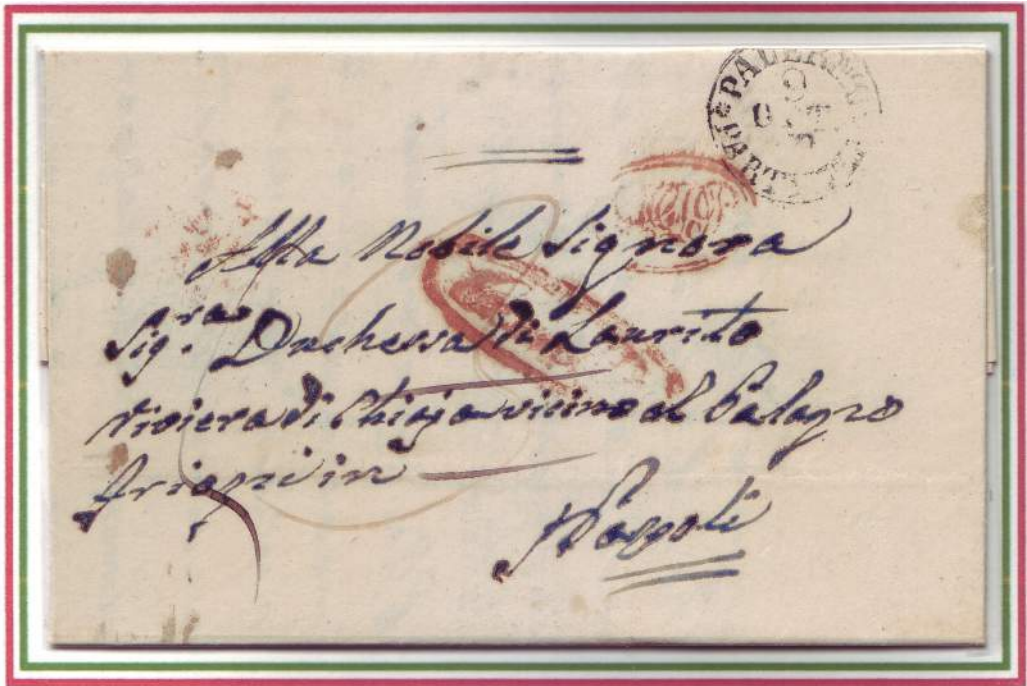 PALERMO
9
PARTZA
Alla Nobile Signora
Sig.ra Duchessa di Laurito
Riviera di Chiaja vicino al Palazzo
in
Napoli